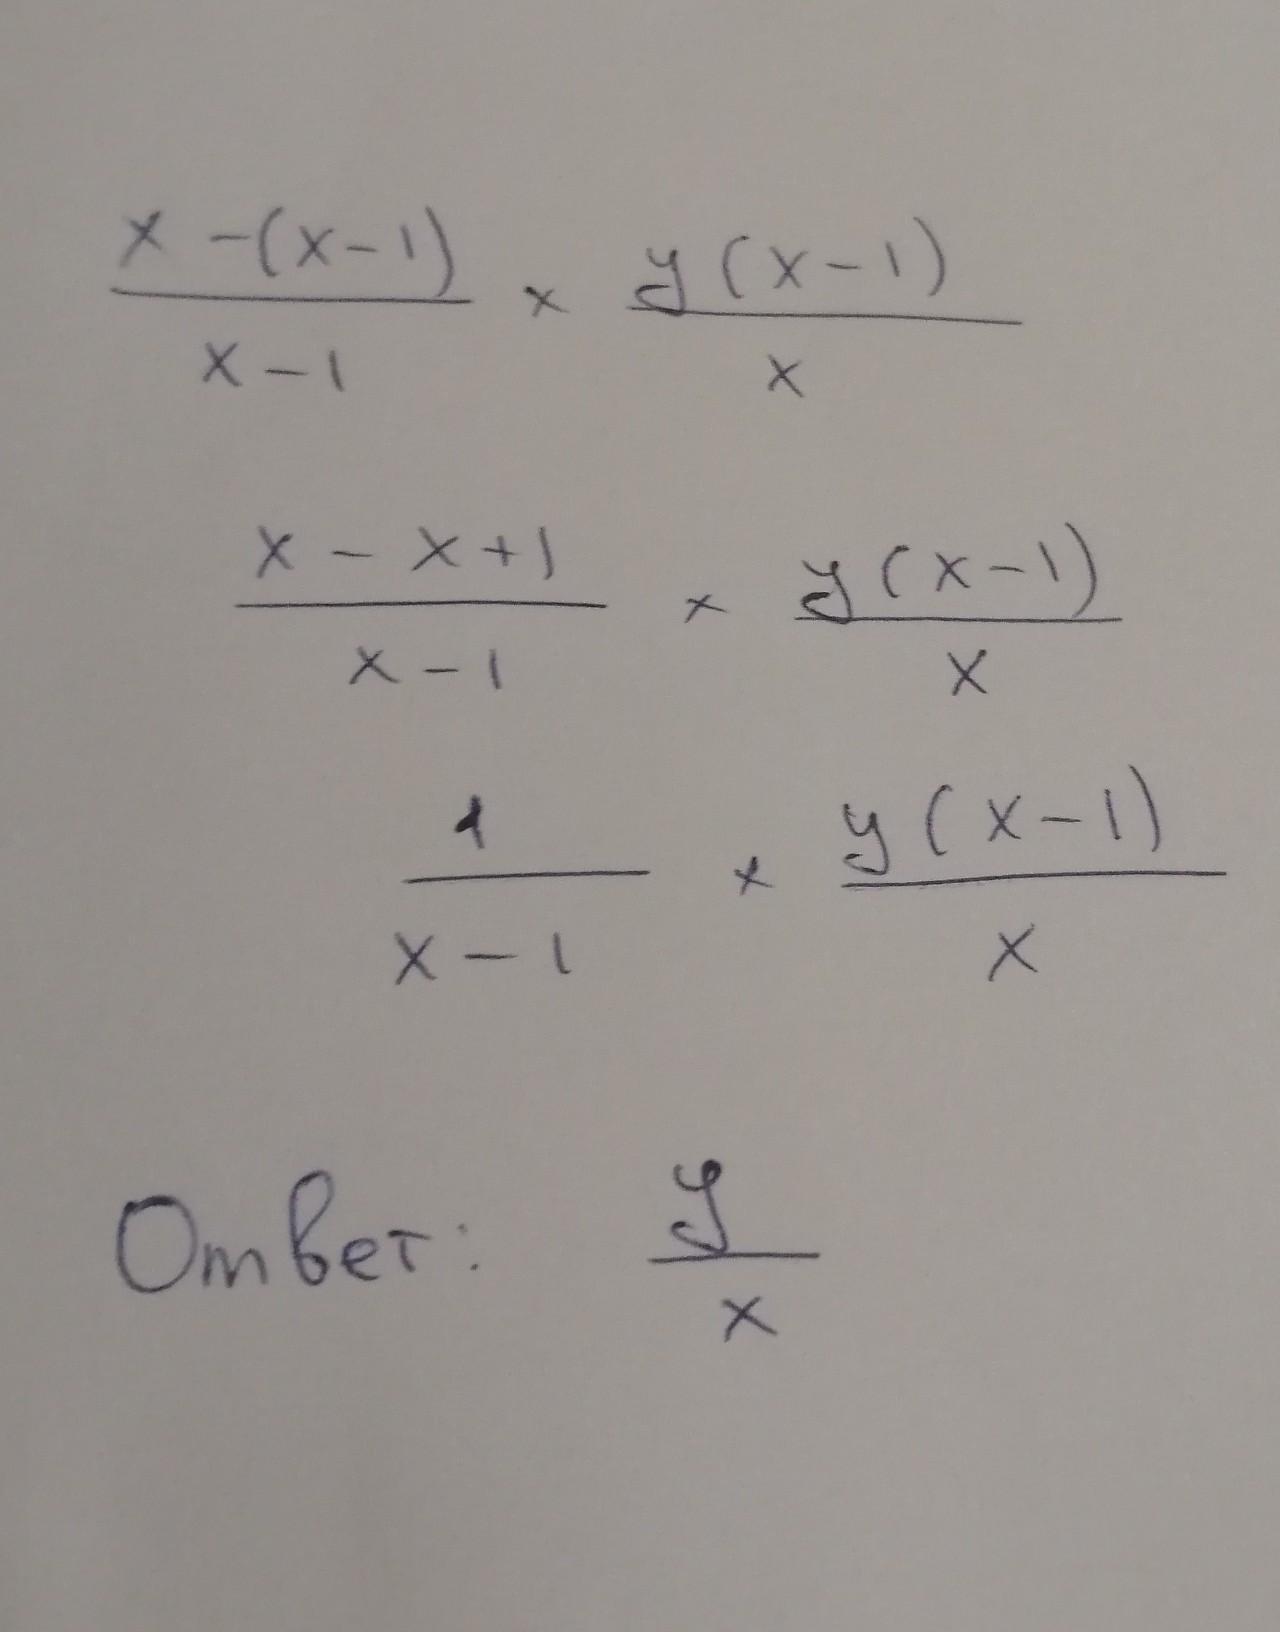 x -(x-1)/x-1 × y(x-1)/x
x - x+1/x-1 × y(x-1)/x
1/x-1 × y(x-1)/x
Ответ: y/x